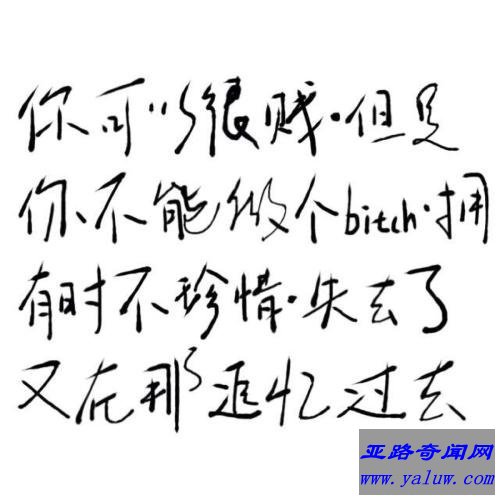 你可以很贱·但是
你不能做个bitch·拥
有时不珍惜·失去了
又在那追忆过去
亚路奇闻网
www.yaluw.com